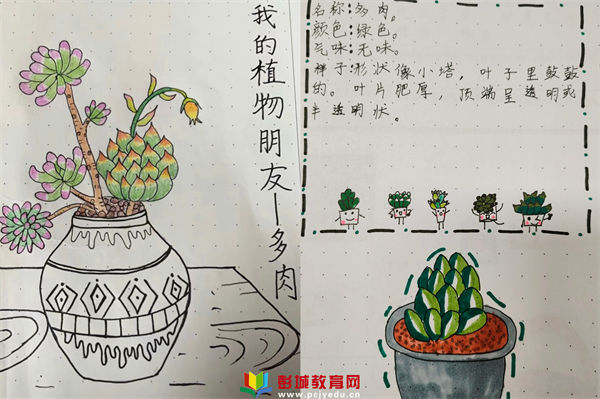 我的植物朋友—多肉
名称:多肉。
颜色:绿色。
气味:无味。
样子:形状像小塔,叶子里鼓鼓
的。叶片肥厚,顶端呈透明或
半透明状。
彭城教育网
www.pcjyedu.cn